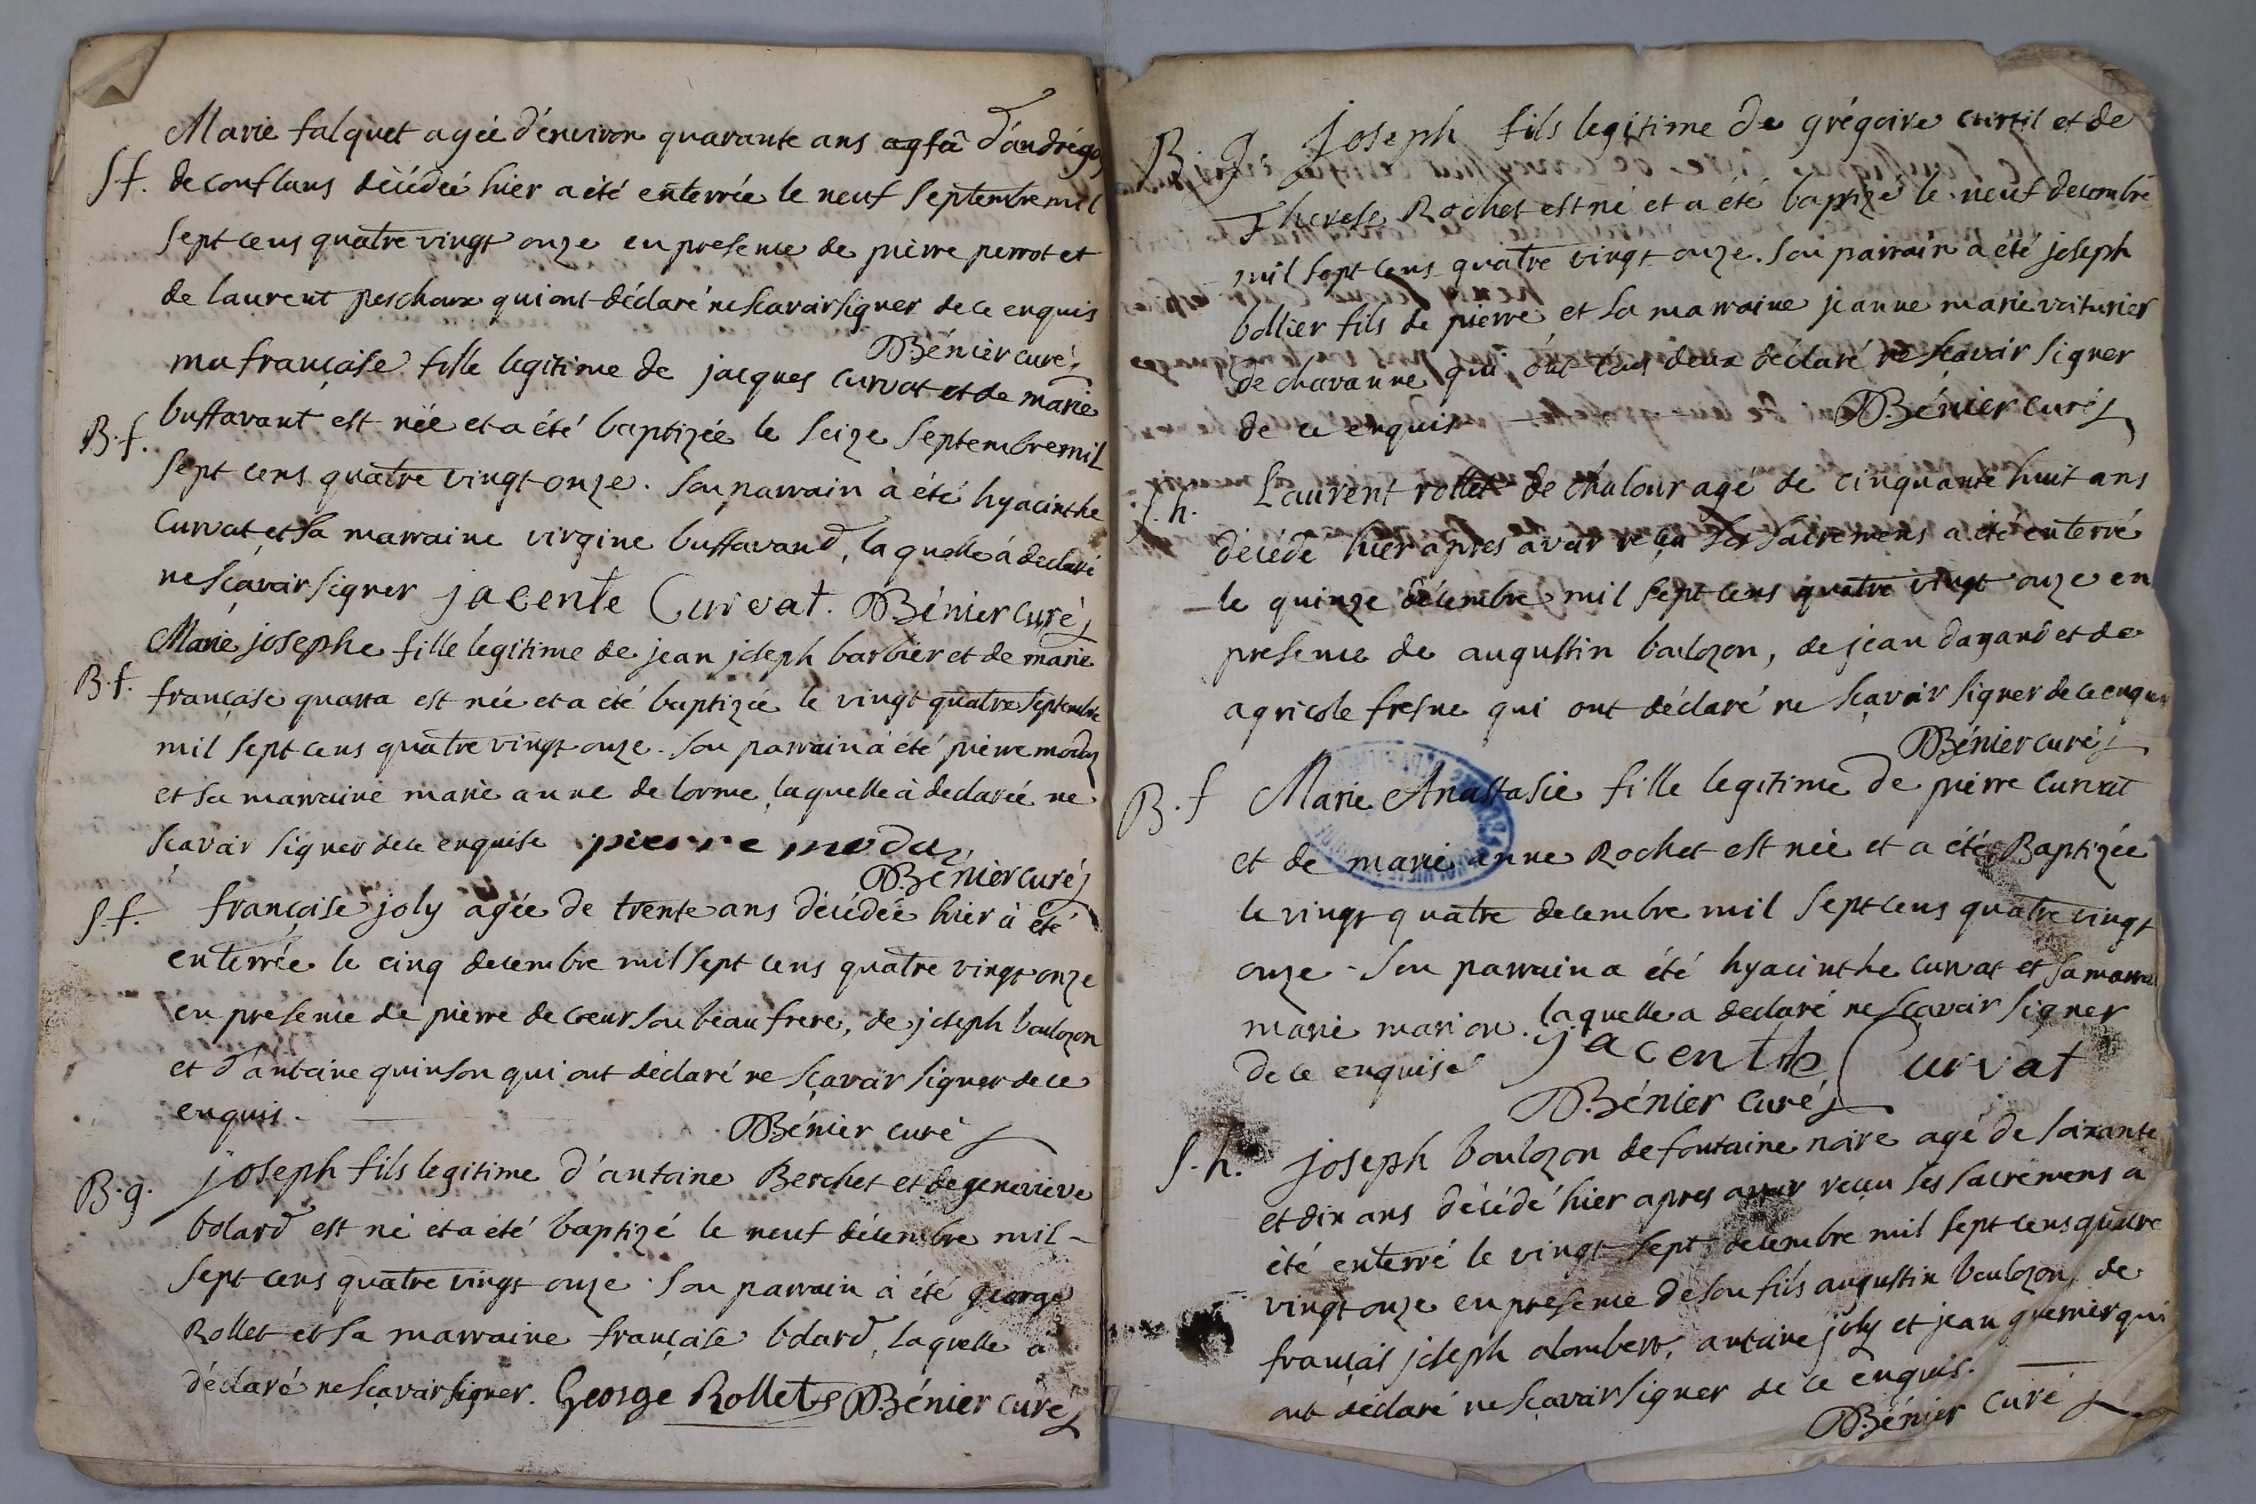 Marie falquet agée d'environ quarante ans d'andrég
S.f. de conflans décédeé hier a été enterrée le neuf Septembre mil
Sept cens quatre vingt onze en presence de pierre perrot et
de laurent peschoux qui ont déclaré ne scavoir signer de ce enquis
Bénier curé
ma françoise fille legitime de jacques curvat et de marie
B.f. buffavant est née et a été baptizée le seize Septembre mil
Sept cens quatre vingt onze. Son parrain à été hyacinthe
Curvat et sa marraine virgine buffavand, laquelle à declaré
ne sçavoir signer jacente Curvat. Bénier curé
Marie josephe fille legitime de jean joseph barbier et de marie
B.f. françoise quarra est née et a été baptizée le vingt quatre Septembre
mil Sept cens quatre vingt onze. Son parrain à été pierre moday
et sa marraine marie anne de lorme, laquelle à declarée ne
sçavoir signer de ce enquise pierre moday
Bénier curé
S.f. françoise joly agée de trente ans décédeé hier à été
enterrée le cinq decembre mil Sept cens quatre vingt onze
en presence de pierre de coeur son beau frere, de joseph boulozon
et d'antoine quinson qui ont déclaré ne sçavoir signer de ce
enquis.
Bénier curé
B.g. joseph fils legitime d'antoine Berchet et de genevieve
bolard est né et a été baptizé le neuf décembre mil
Sept cens quatre vingt onze. Son parrain à été george
Rollet et sa marraine françoise bolard, laquelle a
déclaré ne sçavoir signer. George Rollet Bénier curé
B. g. Joseph fils legitime de grégoire curtil et de
Therese Rochet est né et a été baptizé le neuf decembre
mil Sept cens quatre vingt onze. Son parrain a été joseph
bollier fils de pierre et sa marraine jeanne marie voiturier
de chavanne qui ont tous deux déclaré ne sçavoir signer
de ce enquis Bénier curé
S.h. Laurent rollet de chalour agé de cinquante huit ans
décédé hier apres avoir reçu ses sacremens a été enterré
le quinze décembre mil Sept cens quatre vingt onze en
presence de augustin boulozon, de jean dagand et de
agricole fresne qui ont déclaré ne sçavoir signer de ce enquis
Bénier curé
B.f Marie Anastasie fille legitime de pierre curvat
et de marie anne Rochet est née et a été Baptizée
le vingt quatre decembre mil Sept cens quatre vingt
onze. Son parrain a été hyacinthe curvat et sa marra
marie marion. laquelle a declaré ne sçavoir signer
de ce enquise jacente Curvat
Bénier curé
S.h. joseph boulozon de fontaine noire agé de soixante
et dix ans décédé hier apres avoir reçeu ses sacremens a
été enterré le vingt Sept decembre mil Sept cens quatre
vingt onze en presence de son fils augustin boulozon, de
françois joseph alombert, antoine joly et jean guerrier qui
ont déclaré ne sçavoir signer de ce enquis.
Bénier curé